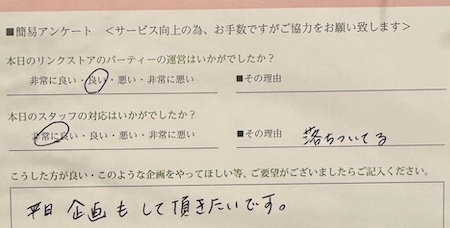 ■簡易アンケート <サービス向上の為、お手数ですがご協力をお願い致します>
本日のリンクストアのパーティーの運営はいかがでしたか?
非常に良い・良い・悪い・非常に悪い ■その理由
本日のスタッフの対応はいかがでしたか?
非常に良い・良い・悪い・非常に悪い ■その理由 落ちついてる
こうした方が良い・このような企画をやってほしい等、ご要望がございましたらご記入ください。
平日 企画も して頂きたいです。